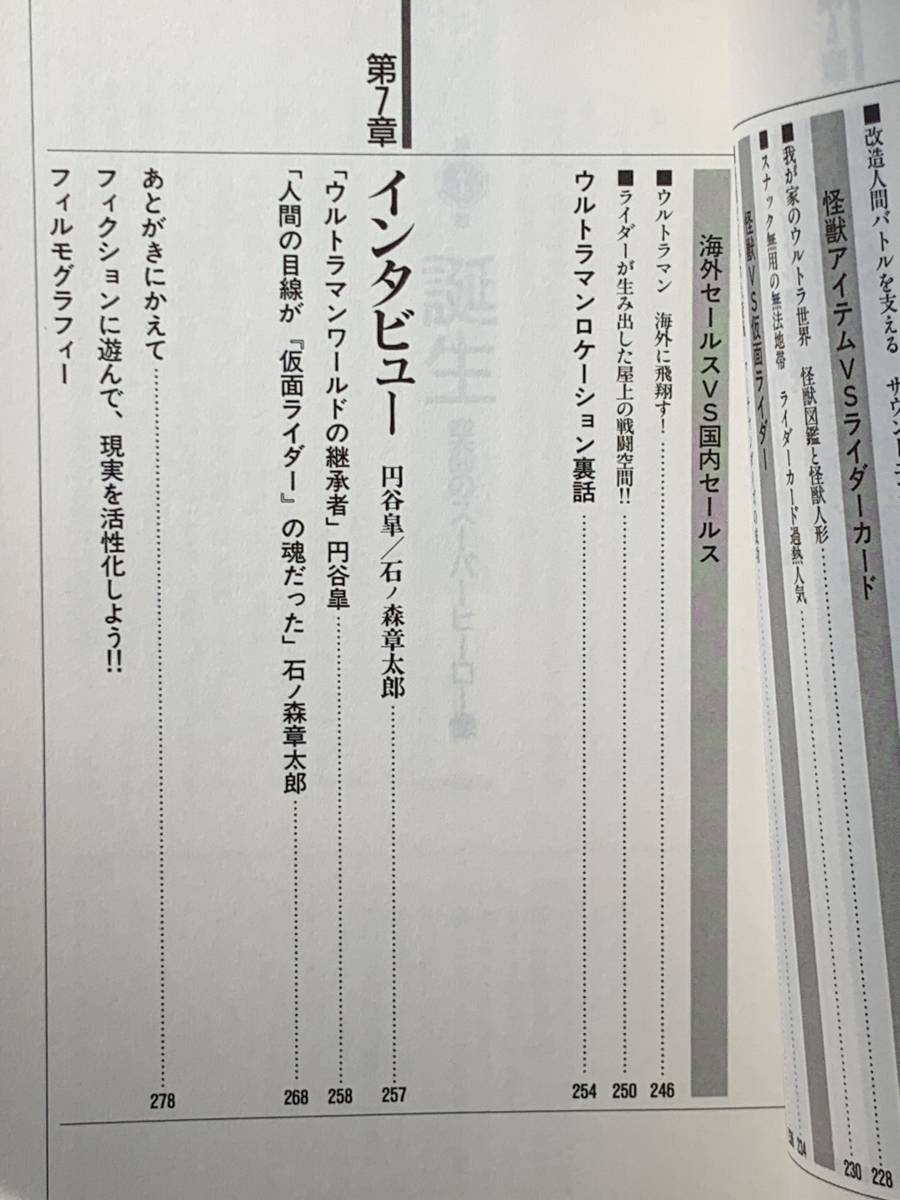 ■改造人間バトルを支える
228
怪獣アイテムVSライダーカード
■我が家のウルトラ世界　怪獣図鑑と怪獣人形……230
■スナック無用の無法地帯　ライダーカード過熱人気……234
怪獣VS仮面ライダー
海外セールスVS国内セールス
■ウルトラマン　海外に飛翔す！……246
■ライダーが生み出した屋上の戦闘空間!!……250
ウルトラマンロケーション裏話……254
第7章
インタビュー　円谷皐／石ノ森章太郎……257
「ウルトラマンワールドの継承者」円谷皐……258
「人間の目線が『仮面ライダー』の魂だった」石ノ森章太郎……268
あとがきにかえて……278
フィクションに遊んで、現実を活性化しよう!!
フィルモグラフィー